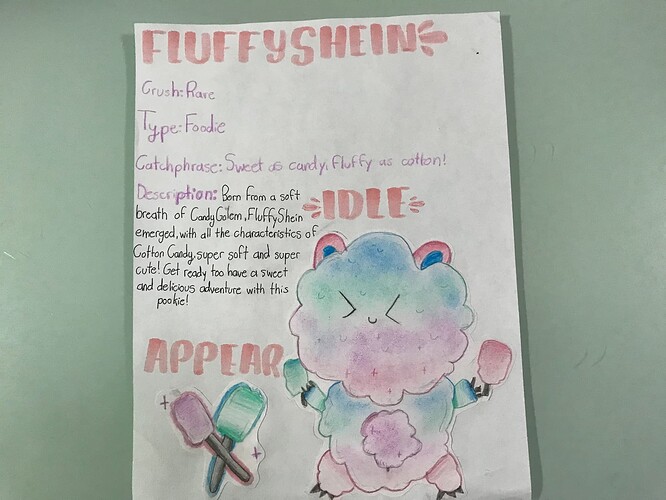 FLUFFYSHEIN
Crush: Rare
Type: Foodie
Catchphrase: Sweet as candy, fluffy as cotton!
Description: Born from a soft
breath of CandyGolem, FluffyShein
emerged, with all the characteristics of
Cotton Candy, super soft and super
cute! Get ready too have a sweet
and delicious adventure with this
pookie!
IDLE
APPEAR